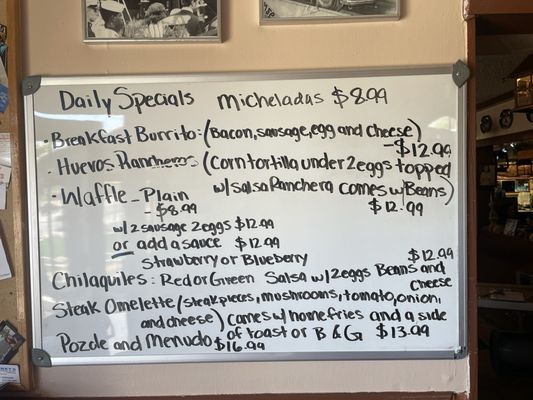 Daily Specials Micheladas $8.99
· Breakfast Burrito: (Bacon, sausage, egg and cheese)
- $12.99
· Huevos Rancheros (Corn tortilla under 2 eggs topped
w/ salsa Ranchera comes w/ Beans)
$12.99
· Waffle - Plain
- $8.99
w/ 2 sausage 2 eggs $12.99
or add a sauce $12.99
Strawberry or Blueberry
$12.99
Chilaquiles: Red or Green Salsa w/ 2 eggs Beans and
cheese
Steak Omelette (steak pieces, mushrooms, tomato, onion,
and cheese) comes w/ homefries and a side
of toast or B & G $13.99
Pozole and Menudo $16.99